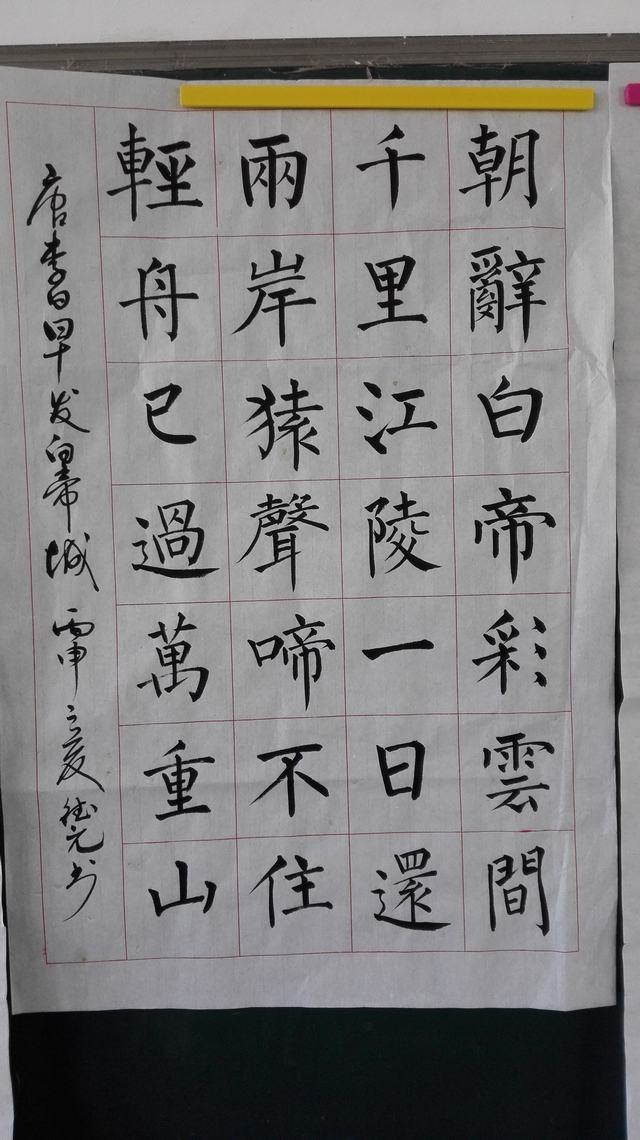 朝辭白帝彩雲間
千里江陵一日還
兩岸猿聲啼不住
輕舟已過萬重山
唐李白早发白帝城 丙申之夏德元书